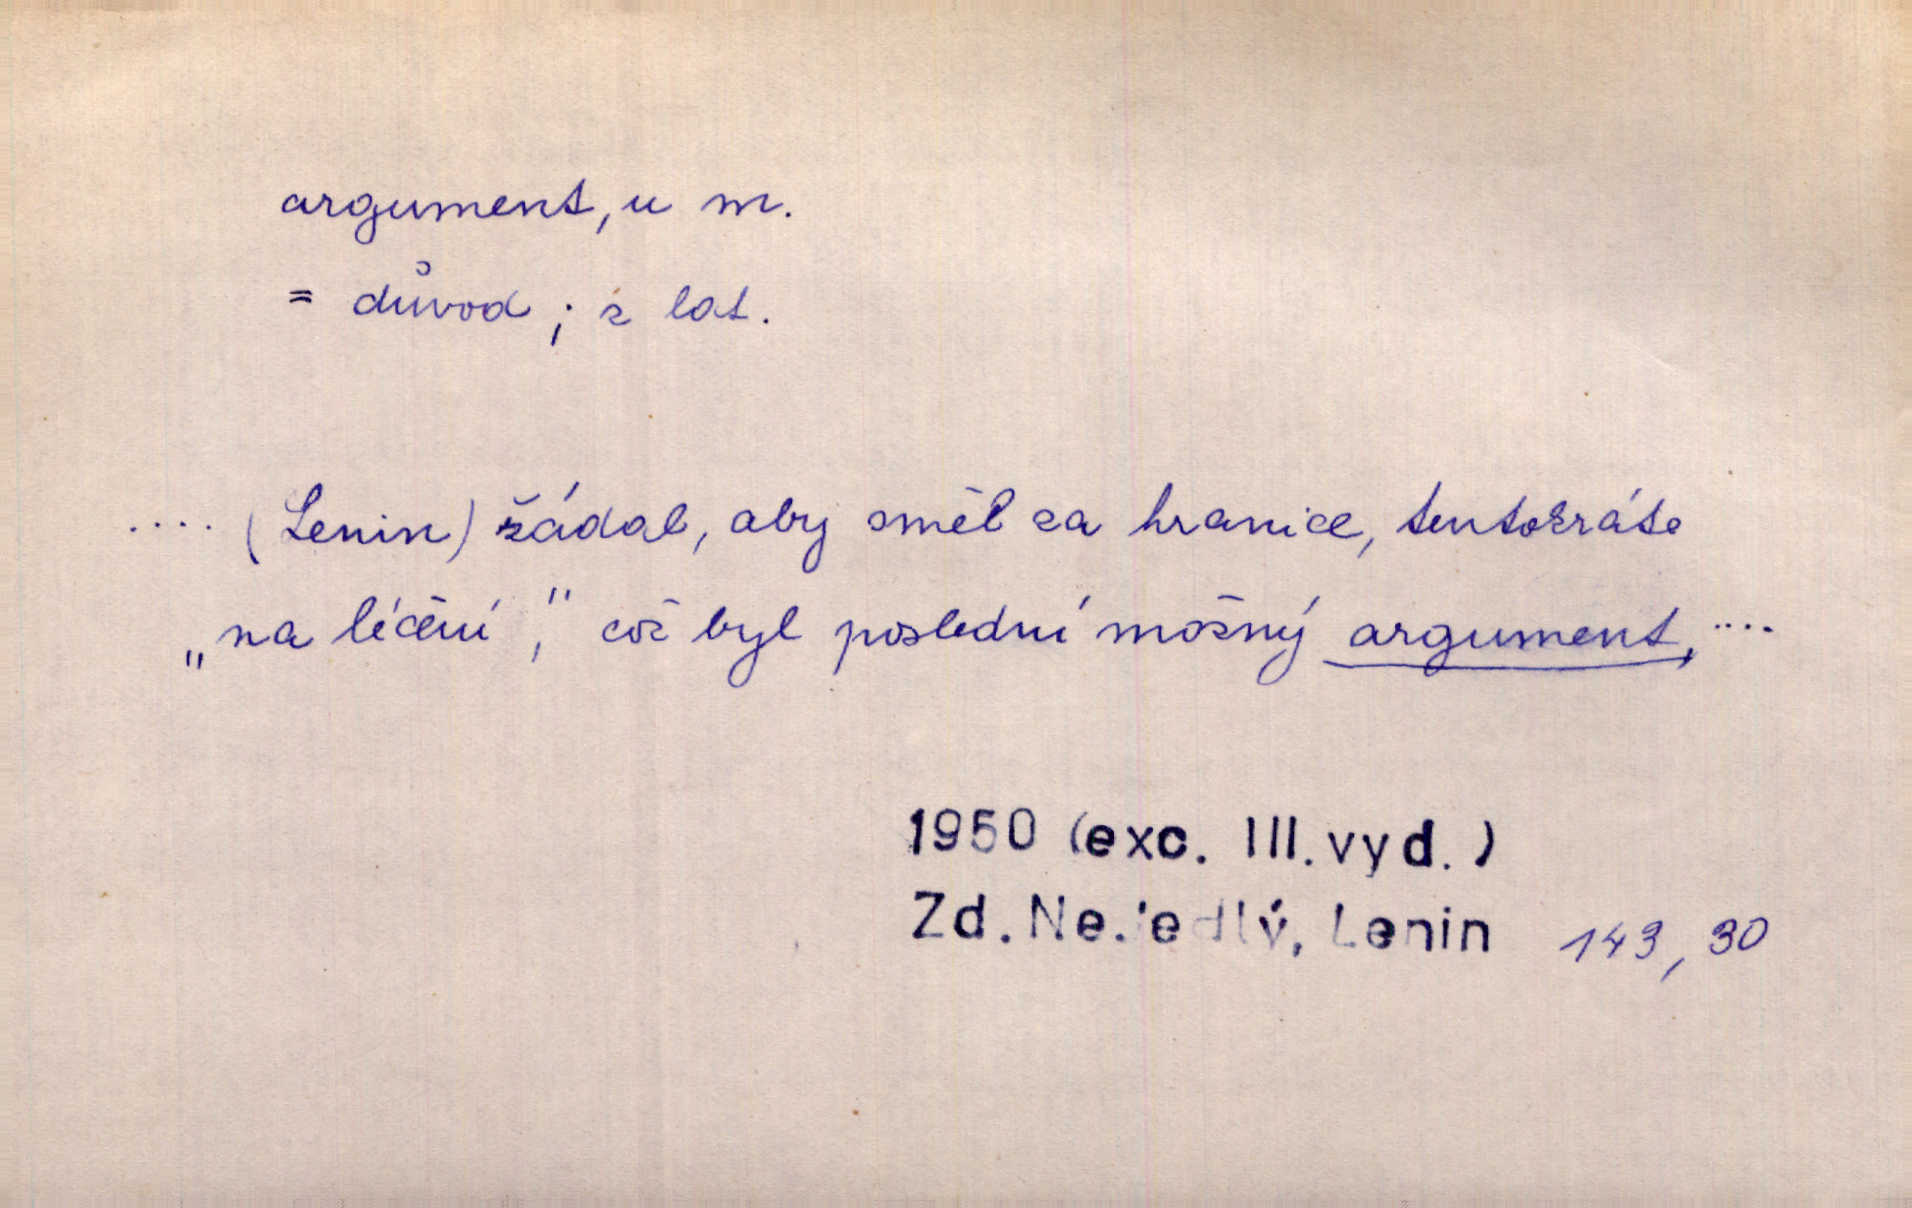 argument, u m.
= důvod ; z lat.
.... (Lenin) žádal, aby směl za hranice, tentokráte
„na léčení“, což byl poslední možný argument, ....
1950 (exc. III. vyd. )
Zd. Nejedlý, Lenin 143, 30